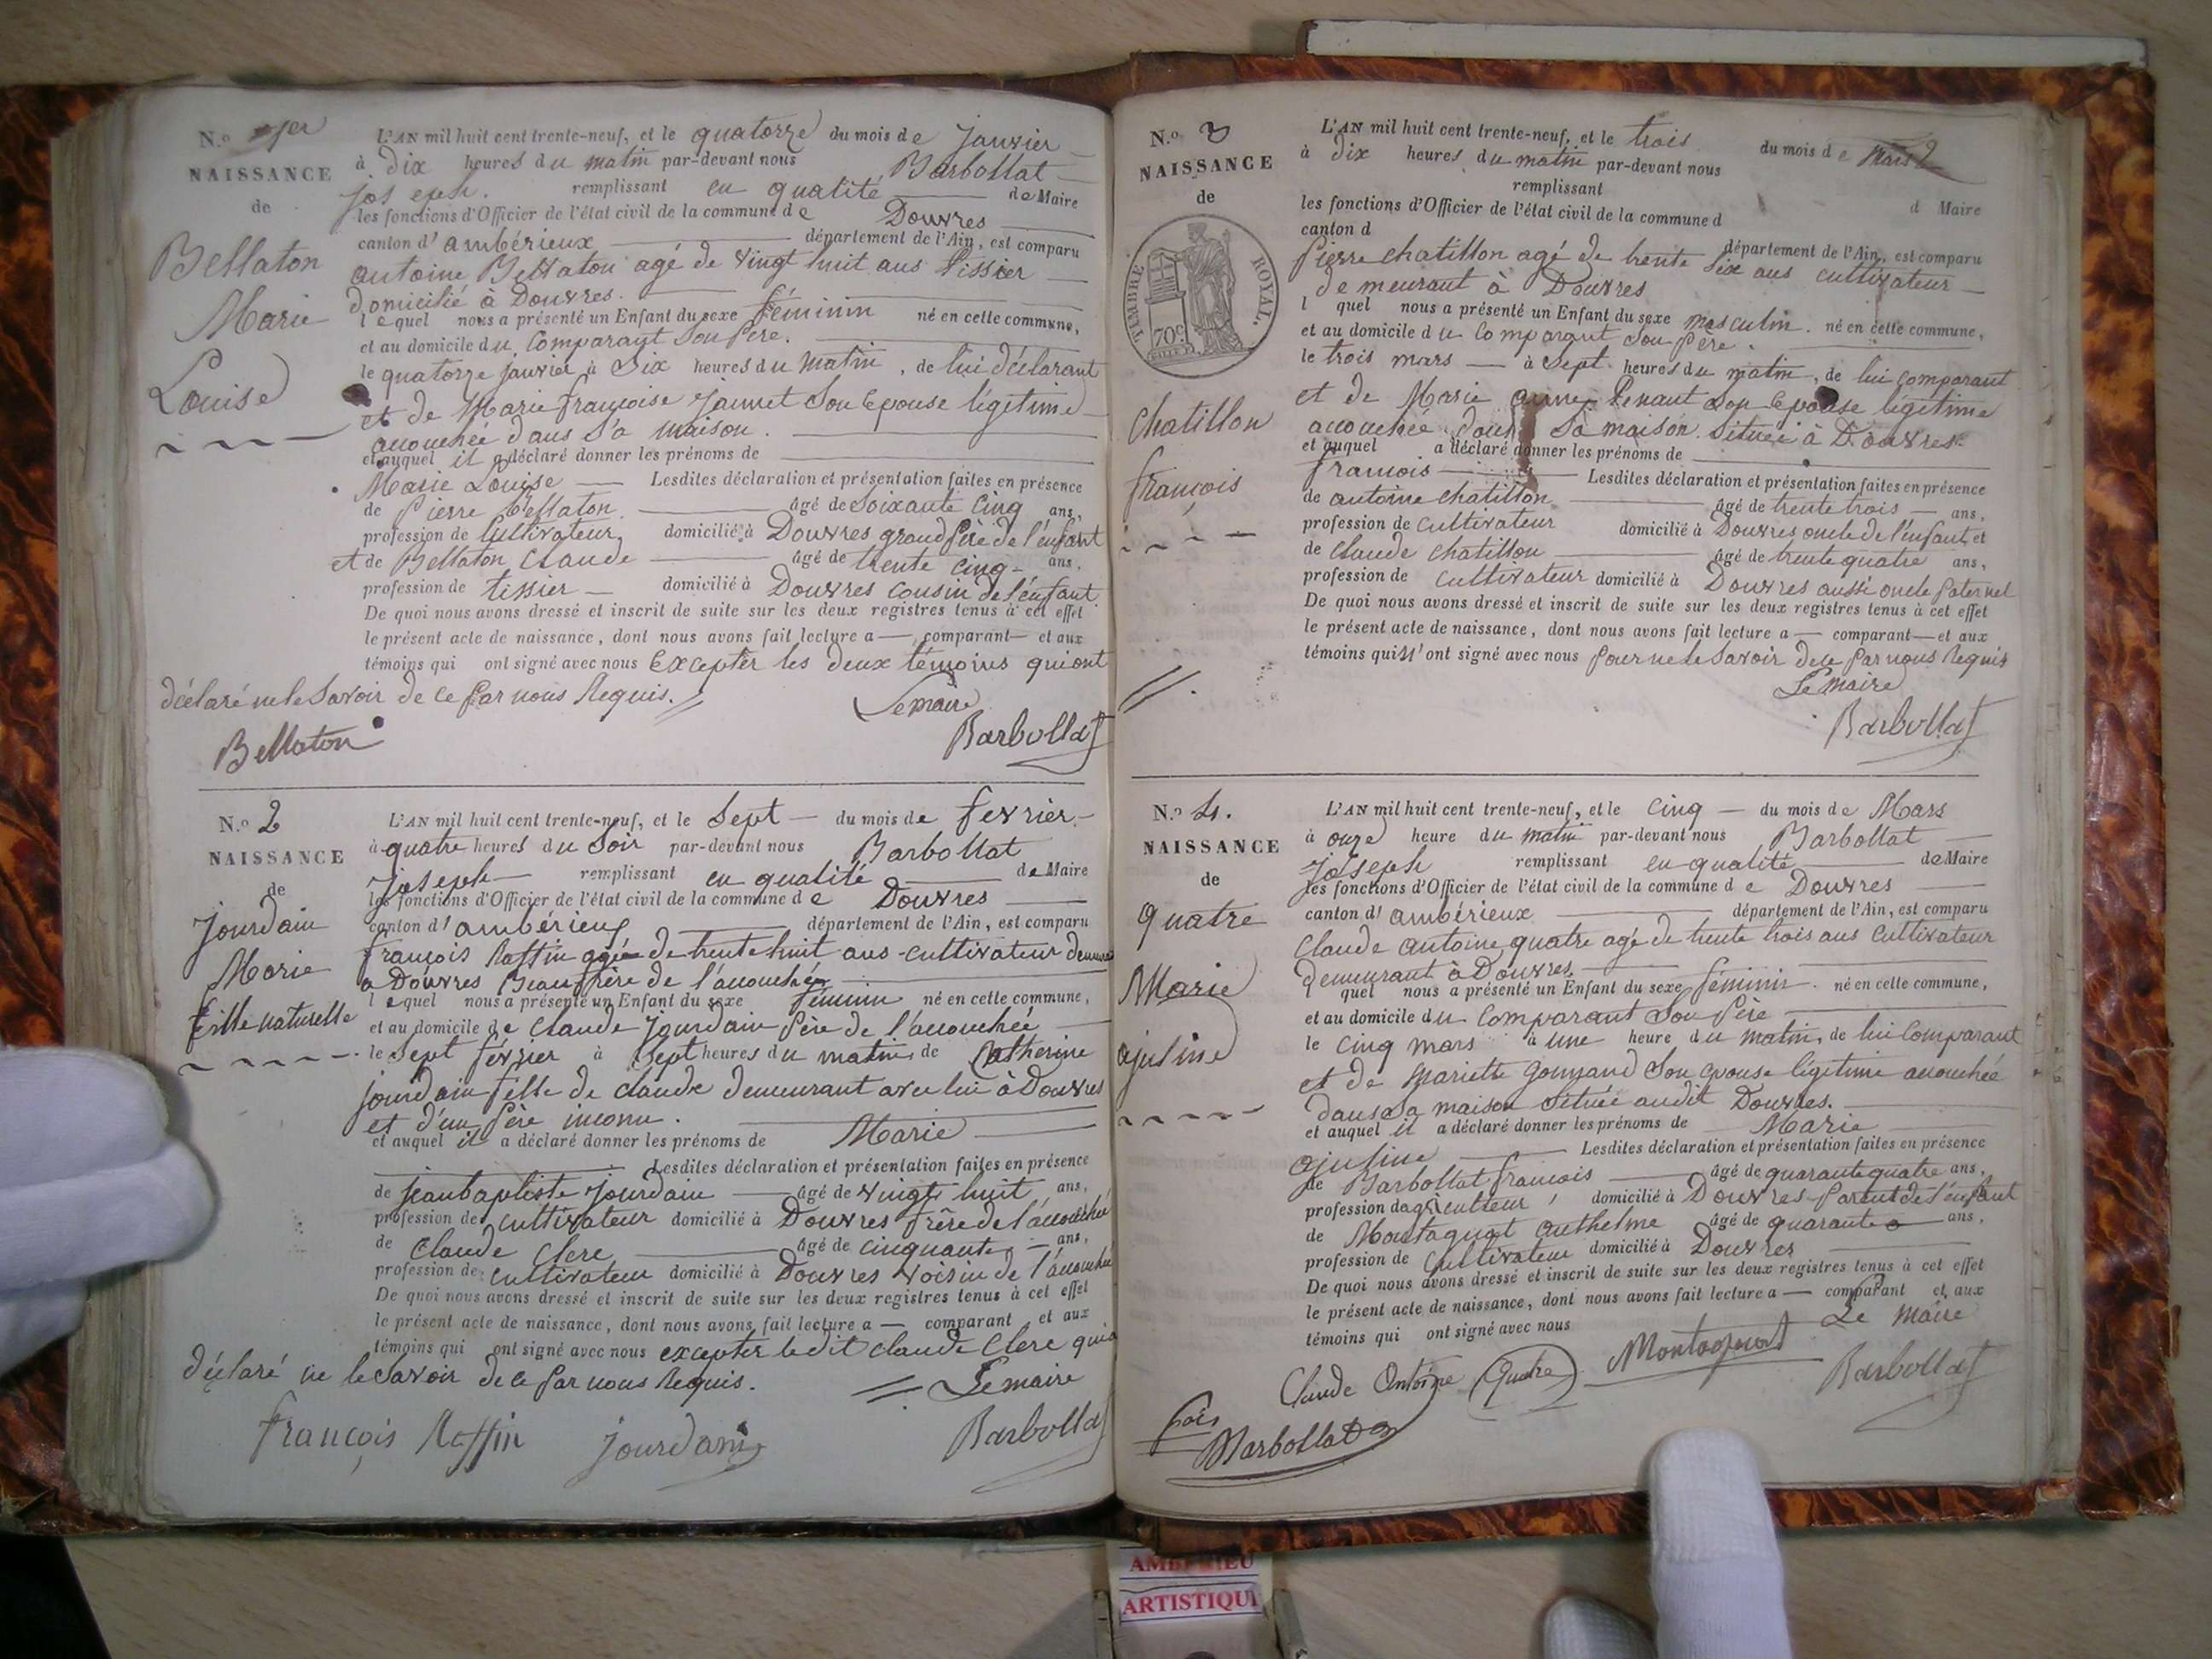 N.o 1er
NAISSANCE
de
Bellaton
Marie
Louise
L'AN mil huit cent trente-neuf, et le quatorze du mois de Janvier
à Dix heures du matin par-devant nous Barbollat
joseph. remplissant en qualité de Maire
les fonctions d'Officier de l'état civil de la commune de Douvres
canton d'ambérieux département de l'Ain, est comparu
antoine Bellaton agé de vingt huit ans tissier
domicilié à Douvres.
lequel nous a présenté un Enfant du sexe féminin né en cette commune,
et au domicile du comparant son père.
le quatorze janvier à Six heures du matin, de lui déclarant
et de Marie françoise jannet son épouse légitime
accouchée dans sa maison.
et auquel il a déclaré donner les prénoms de
Marie Louise Lesdites déclaration et présentation faites en présence
de Pierre Bellaton âgé de soixante cinq ans,
profession de Cultivateur domicilié à Douvres grand père de l'enfant
et de Bellaton Claude âgé de trente cinq ans,
profession de tissier domicilié à Douvres cousin de l'enfant
De quoi nous avons dressé et inscrit de suite sur les deux registres tenus à cet effet
le présent acte de naissance, dont nous avons fait lecture a comparant et aux
témoins qui ont signé avec nous Excepter les deux témoins qui ont
déclaré ne le savoir de ce par nous Requis.
Le maire
Bellaton Barbollat
N.o 2
NAISSANCE
de
Jourdain
Marie
fille naturelle
L'AN mil huit cent trente-neuf, et le Sept du mois de fevrier
à quatre heures du Soir par-devant nous Barbollat
joseph remplissant en qualité de Maire
les fonctions d'Officier de l'état civil de la commune de Douvres
canton d'ambérieux département de l'Ain, est comparu
françois Raffin agée de trente huit ans cultivateur
a Douvres Beaufrère de l'accouchée
lequel nous a présenté un Enfant du sexe féminin né en cette commune,
et au domicile de Claude Jourdain père de l'accouchée
le Sept février à Sept heures du matin, de Catherine
jourdain fille de claude demeurant avec lui à Douvres
et d'un père inconu.
et auquel il a déclaré donner les prénoms de Marie
Lesdites déclaration et présentation faites en présence
de jeanbaptiste jourdain âgé de vingt huit ans,
profession de cultivateur domicilié à Douvres frère de l'accouchée
de Claude Clere âgé de cinquante ans,
profession de cultivateur domicilié à Douvres voisin de l'accouchée
De quoi nous avons dressé et inscrit de suite sur les deux registres tenus à cet effet
le présent acte de naissance, dont nous avons fait lecture a comparant et aux
témoins qui ont signé avec nous excepter ledit claude Clere qui a
déclaré ne le savoir de ce par nous Requis.
Le maire
françois Raffin jourdain Barbollat
N.o 3
NAISSANCE
de
TIMBRE ROYAL.
70c
Chatillon
françois
L'AN mil huit cent trente-neuf, et le trois du mois de Mars
à Dix heures du matin par-devant nous
remplissant d Maire
les fonctions d'Officier de l'état civil de la commune d
canton d département de l'Ain, est comparu
Pierre chatillon agé de trente Six ans cultivateur
demeurant à Douvres
l quel nous a présenté un Enfant du sexe masculin. né en cette commune,
et au domicile du comparant son père.
le trois mars à Sept heures du matin, de lui comparant
et de Marie anne Penaut son Epouse légitime
accouchée dans sa maison située à Douvres.
et auquel a déclaré donner les prénoms de
francois Lesdites déclaration et présentation faites en présence
de antoine chatillon âgé de trente trois ans,
profession de cultivateur domicilié à Douvres oncle de l'enfant et
de Claude chatillon âgé de trente quatre ans,
profession de cultivateur domicilié à Douvres aussi oncle paternel
De quoi nous avons dressé et inscrit de suite sur les deux registres tenus à cet effet
le présent acte de naissance, dont nous avons fait lecture a comparant et aux
témoins qui n'ont signé avec nous pour ne le savoir de ce par nous Requis
Le maire
Barbollat
N.o 4.
NAISSANCE
de
quatre
Marie
L'AN mil huit cent trente-neuf, et le Cinq du mois de Mars
à onze heure du matin par-devant nous Barbollat
joseph remplissant en qualité de Maire
les fonctions d'Officier de l'état civil de la commune de Douvres
canton d'ambérieux département de l'Ain, est comparu
Claude antoine quatre agé de trente trois ans cultivateur
demeurant à Douvres
l quel nous a présenté un Enfant du sexe féminin. né en cette commune,
et au domicile du comparant son père
le cinq mars à une heure du matin, de lui comparant
et de Mariette son épouse légitime accouchée
dans sa maison située audit Douvres.
et auquel il a déclaré donner les prénoms de Marie
Lesdites déclaration et présentation faites en présence
de Barbollat francois âgé de quarante quatre ans,
profession dagriculteur domicilié à Douvres parent de l'enfant
de Montagnat anthelme âgé de quarante ans,
profession de Cultivateur domicilié à Douvres
De quoi nous avons dressé et inscrit de suite sur les deux registres tenus à cet effet
le présent acte de naissance, dont nous avons fait lecture a comparant et aux
témoins qui ont signé avec nous Le Maire
Claude Antoine Quatre Montagnat Barbollat
fçois Barbollat
AMBERIEU
ARTISTIQU